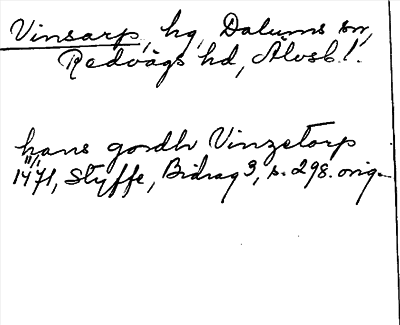 Vinsarp, hg, Dalums sn,
Redvägs hd, Älvsb. l.
hans gordh Vinzetorp
11/1
1471, Styffe, Bidrag 3, s. 298. orig.